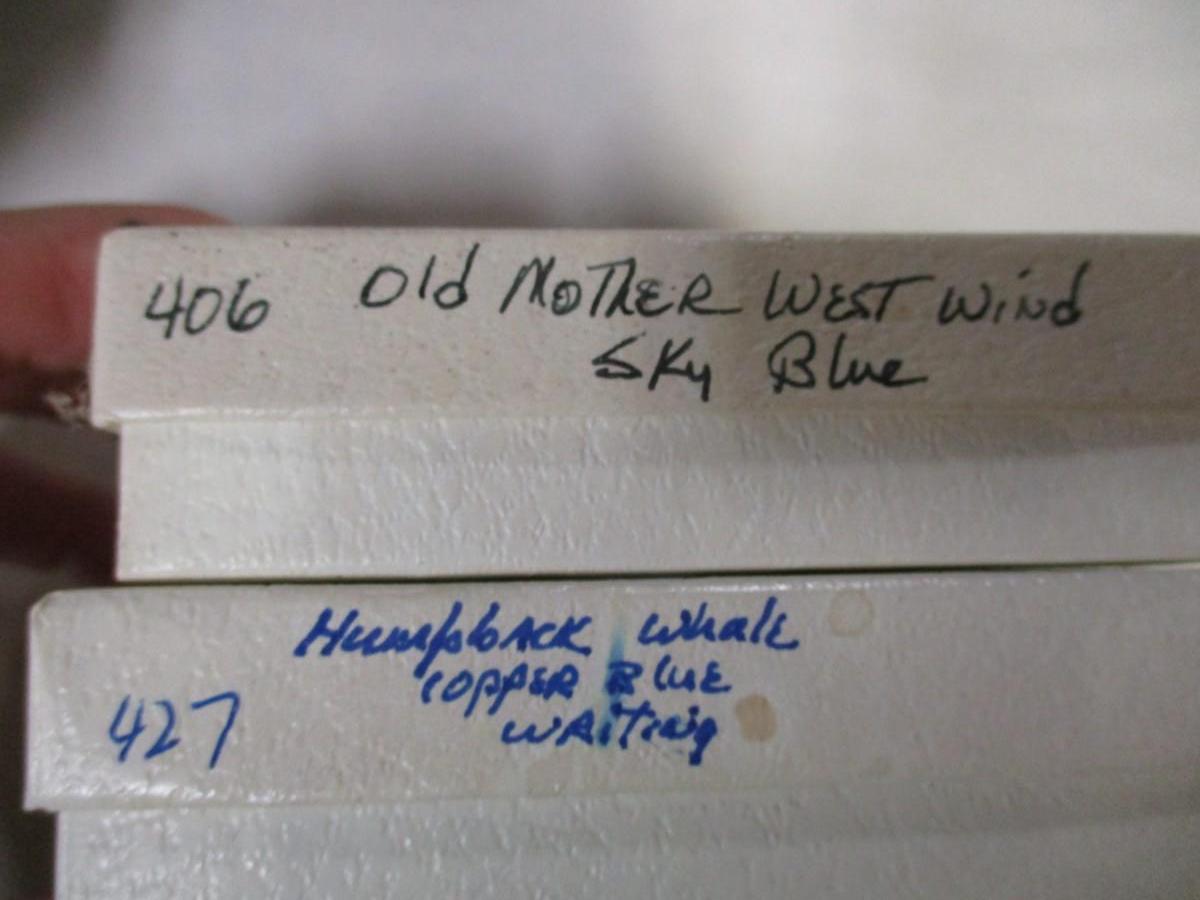 406 Old Mother West Wind
Sky Blue
Humpback Whale
Copper Blue
427 writing